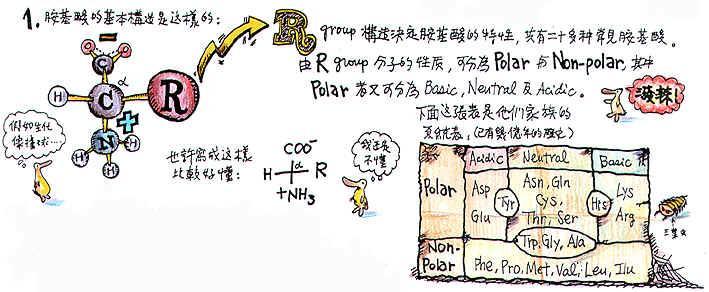 1. 胺基酸的基本構造是這樣的：
R group 構造決定胺基酸的特性，共有二十多種常見胺基酸。
由 R group 分子的性质，可分為 Polar 与 Non-polar，其中
Polar 者又可分為 Basic, Neutral 及 Acidic。
下面這張表是他們家族的
潑辣！
C
α
H
C
R
+
N
H
H
H
假如生化
像棒球…
也許寫成這樣
比較好懂：
COO⁻
α
H
R
+NH₃
我还是
不懂
Acidic
Neutral
Basic
Polar
Asp
Glu
Tyr
Asn, Gln
Cys,
Thr, Ser
His
Lys
Arg
Trp, Gly, Ala
Non-
Polar
Phe, Pro, Met, Val, Leu, Ilu
三葉虫